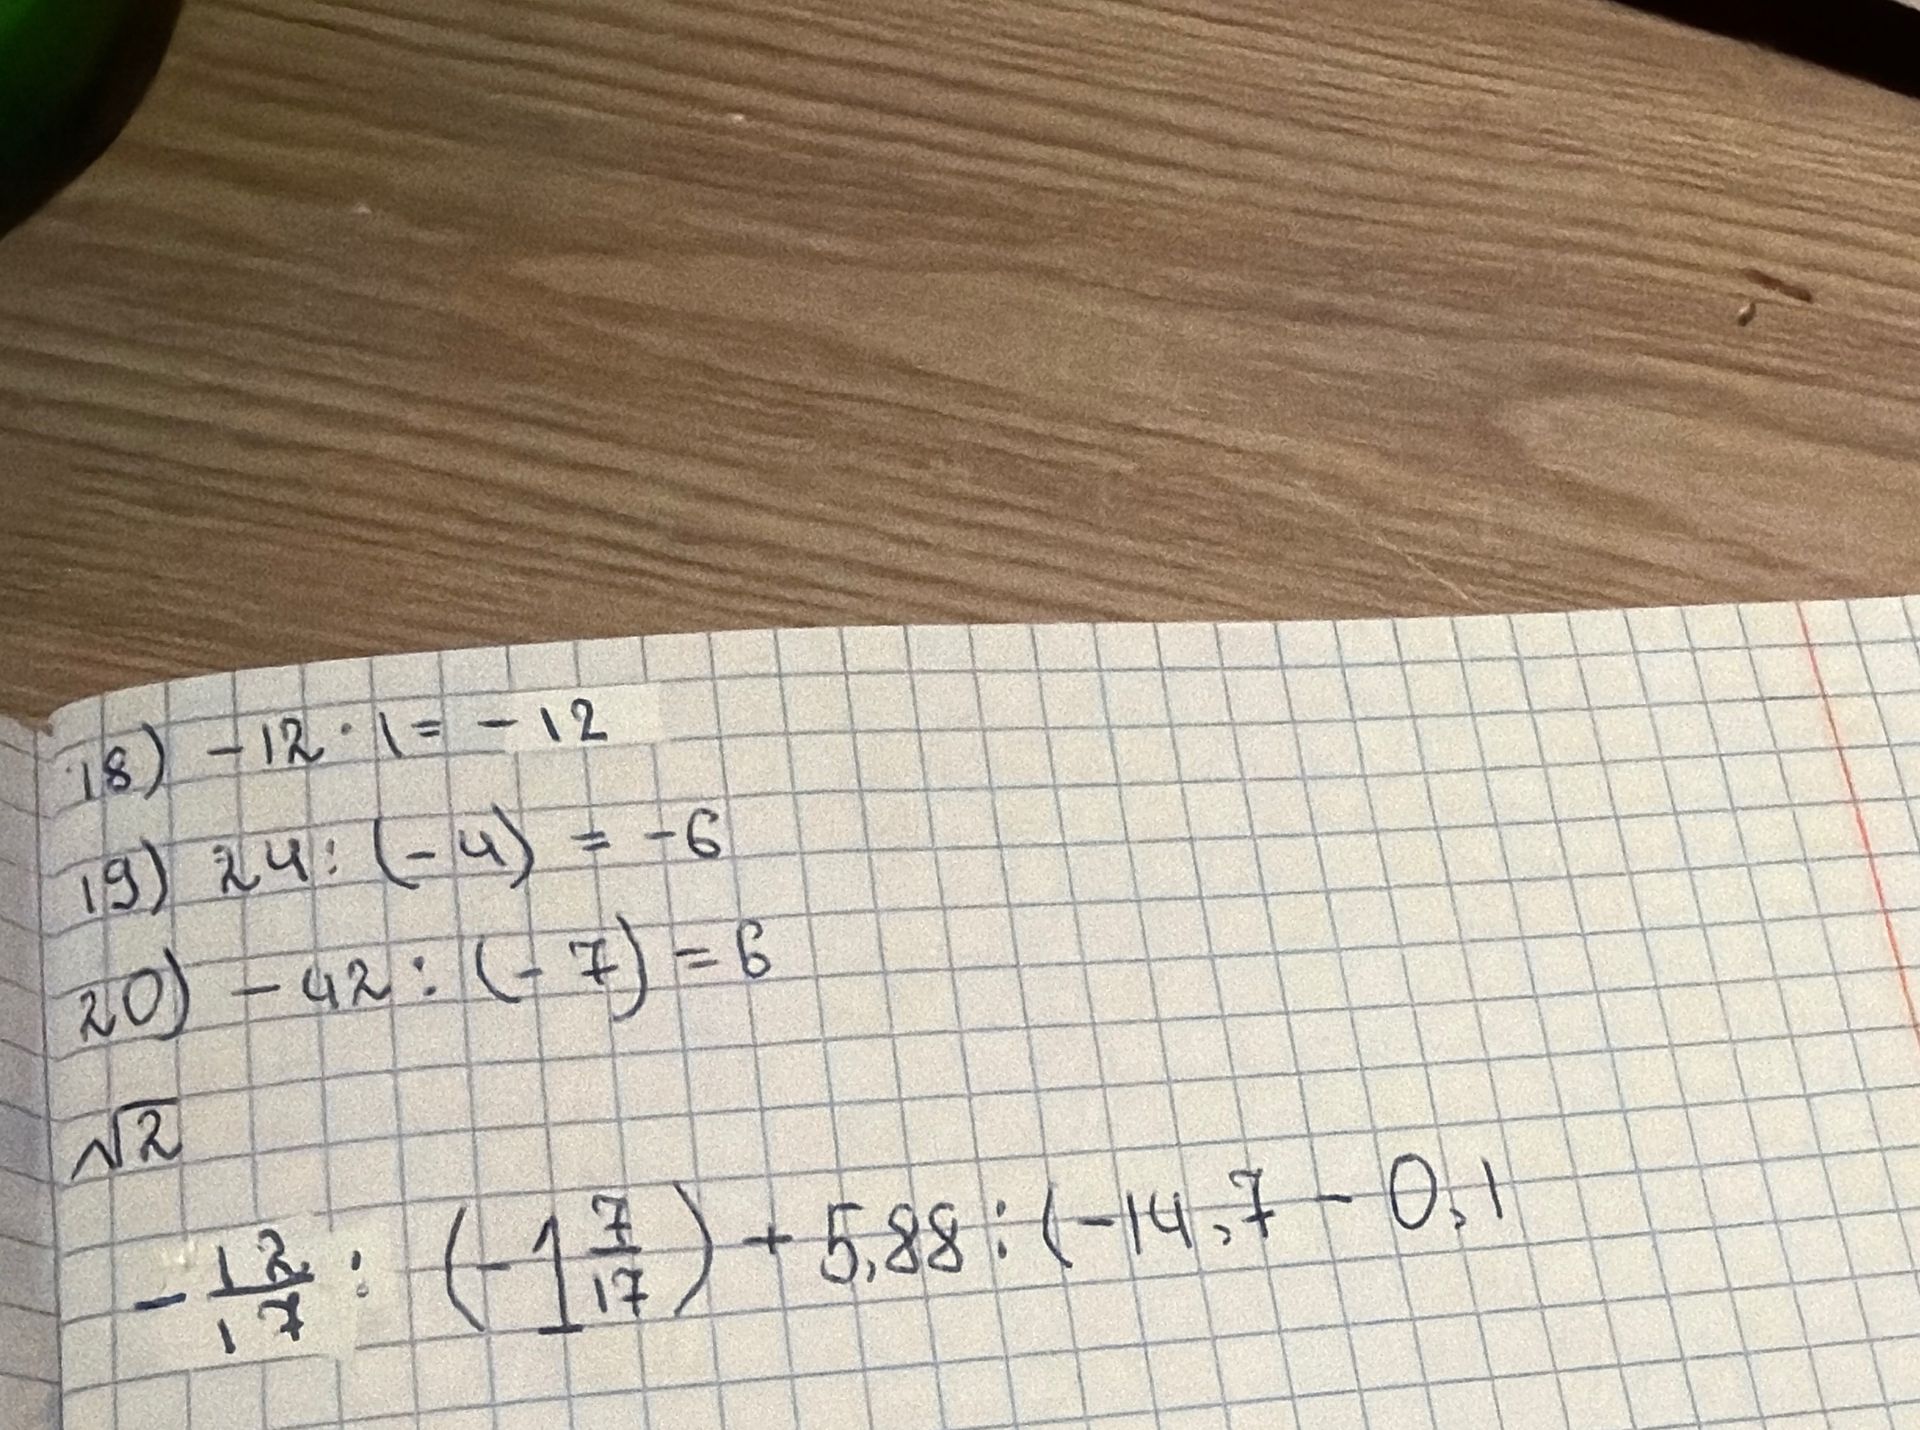 18) -12 · 1 = -12
19) 24 : (-4) = -6
20) -42 : (-7) = 6
√2
-12/17 : (-1 7/17) + 5,88 : (-14,7 - 0,1